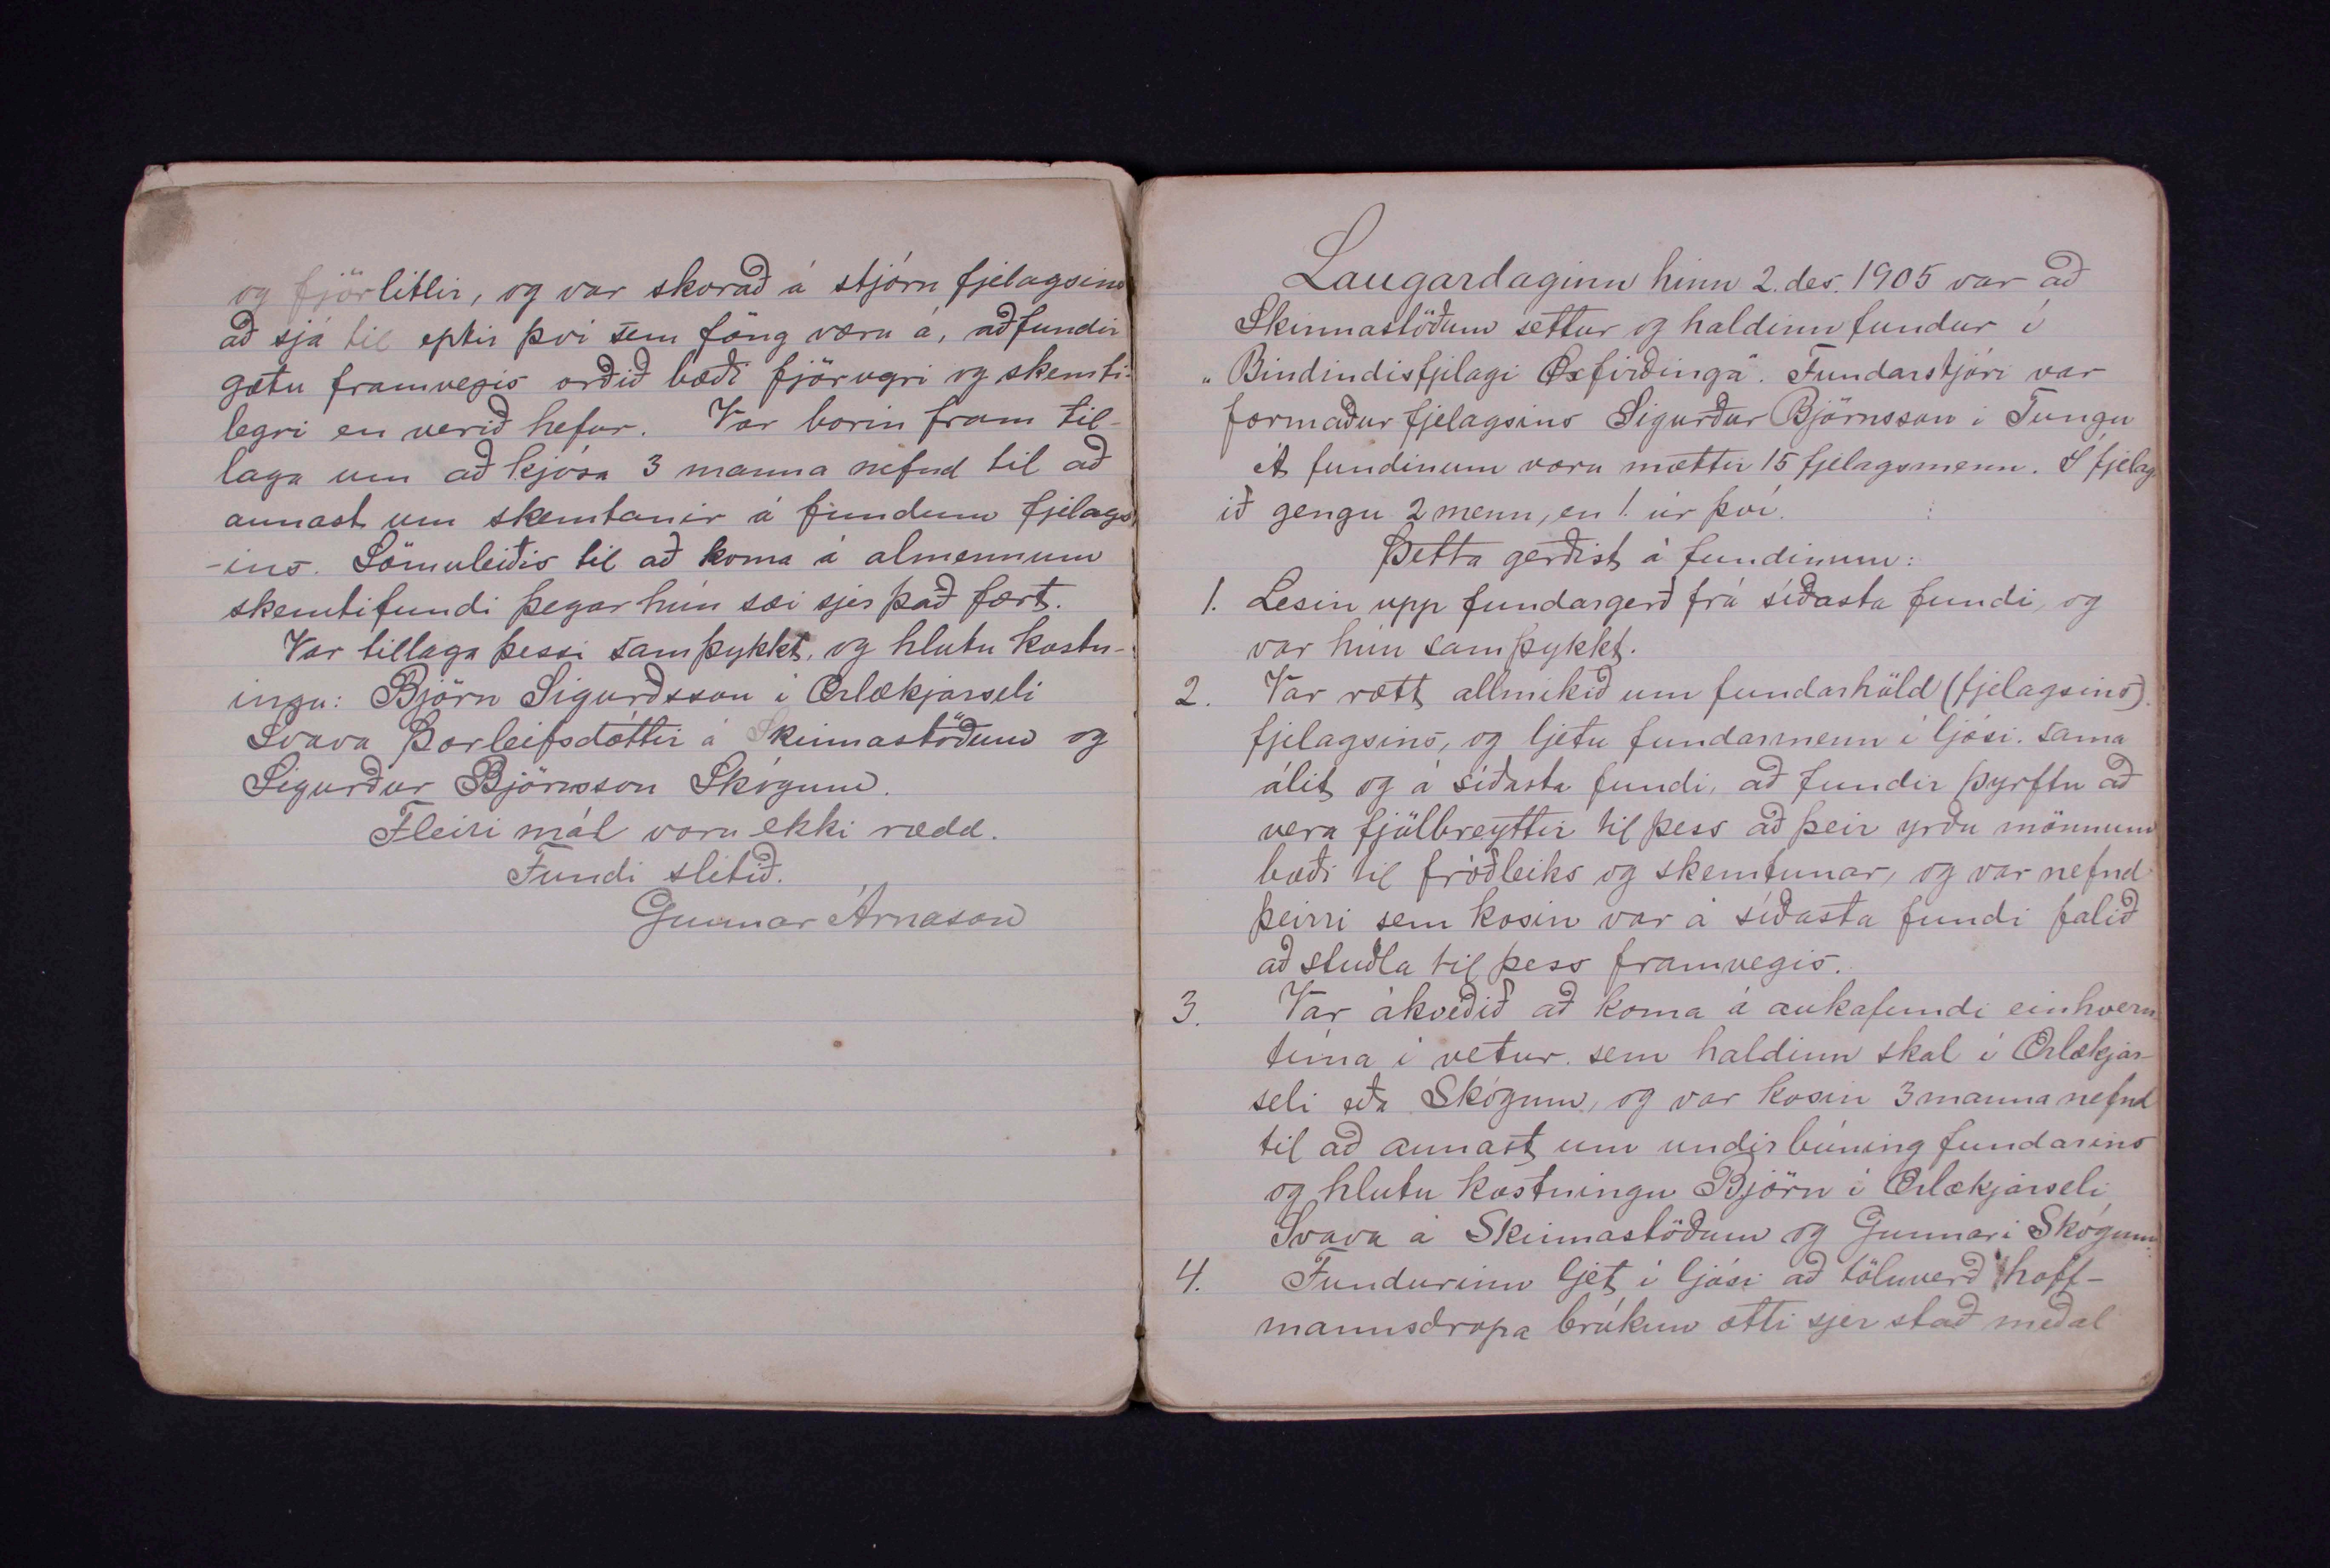 og fjörlitlir, og var skorað á stjórn fjelagsins
að sjá til eptir því sem föng væru á, að fundir
gætu framvegis orðið bæði fjörugri og skemti-
legri en verið hefur. Var borin fram til-
laga um að kjósa 3 manna nefnd til að
annast um skemtanir á fundum fjelags
-ins. Sömuleiðis til að koma á almennum
skemtifundi þegar hún sæi sjer það fært.
Var tillaga þessi samþykkt, og hlutu kostn-
ingu: Björn Sigurðsson í Ærlækjarseli
Svava Þorleifsdóttir á Skinnastöðum og
Sigurður Björnsson Skógum.
Fleiri mál voru ekki rædd.
Fundi slitið.
Gunnar Árnason
Laugardaginn hinn 2. des. 1905 var að
Skinnastöðum settur og haldinn fundur í
„Bindindisfjelagi Öxfirðinga". Fundarstjóri var
formaður fjelagsins Sigurður Björnsson í Tungu
Á fundinum voru mættir 15 fjelagsmenn. Í fjelag
ið gengu 2 menn, en 1. úr því.
Þetta gerðist á fundinum:
1. Lesin upp fundargerð frá síðasta fundi, og
var hún samþykkt.
2. Var rætt allmikið um fundarhöld (fjelagsins)
fjelagsins, og ljetu fundarmenn í ljósi sama
álit og á síðasta fundi, að fundir þyrftu að
vera fjölbreyttir til þess að þeir yrðu mönnum
bæði til fróðleiks og skemtunar, og var nefnd
þeirri sem kosin var á síðasta fundi falið
að stuðla til þess framvegis.
3. Var ákveðið að koma á aukafundi einhvern
tíma í vetur sem haldinn skal í Ærlækjar-
seli eða Skógum, og var kosin 3 manna nefnd
til að annast um undirbúning fundarins
og hlutu kostningu Björn í Ærlækjarseli
Svava á Skinnastöðum og Gunnar í Skógum.
4. Fundurinn ljet í ljósi að töluverð hoff-
mannsdropa brúkun ætti sjer stað meðal